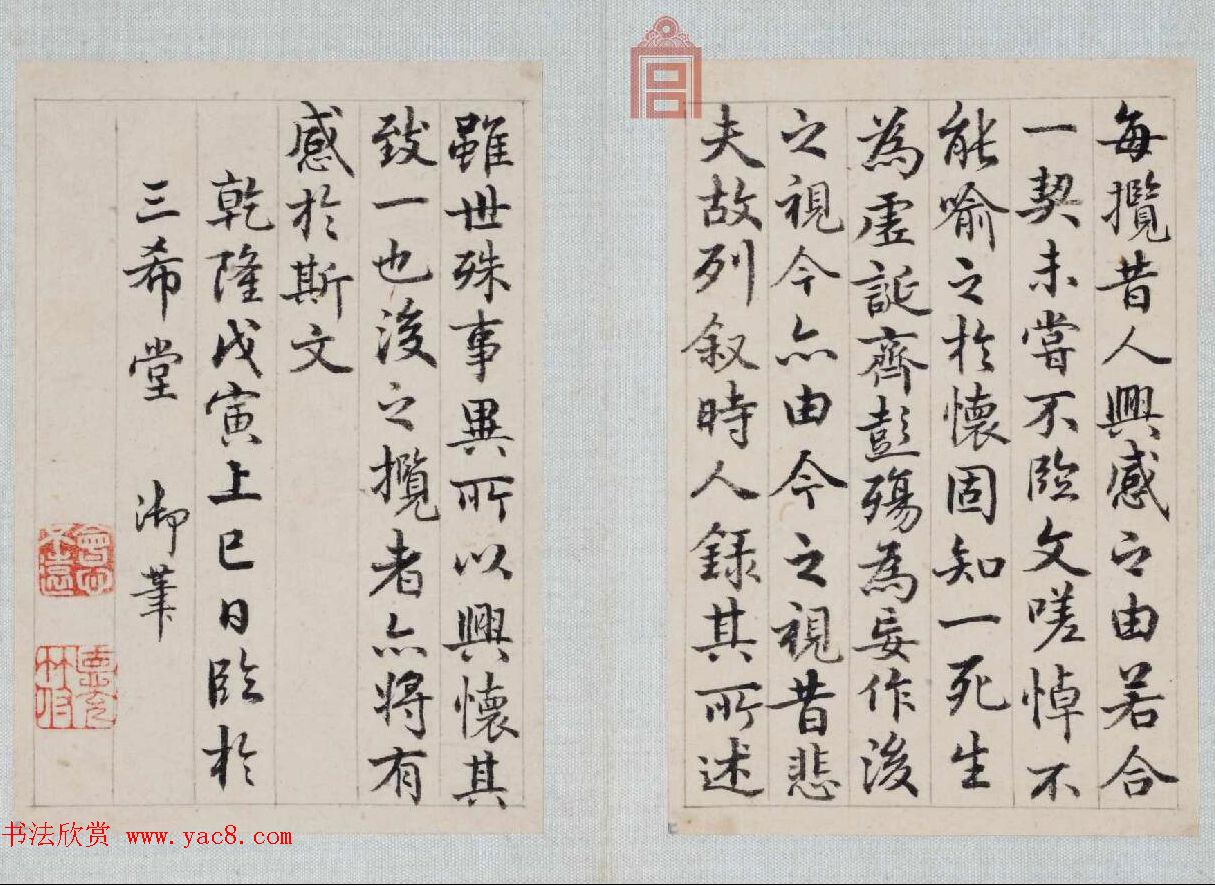 每攬昔人興感之由若合
一契未嘗不臨文嗟悼不
能喻之於懷固知一死生
為虛誕齊彭殤為妄作後
之視今亦由今之視昔悲
夫故列叙時人錄其所述
雖世殊事異所以興懷其
致一也後之攬者亦將有
感於斯文
乾隆戊寅上巳日臨於
三希堂 御筆
書法欣賞 www.yac8.com